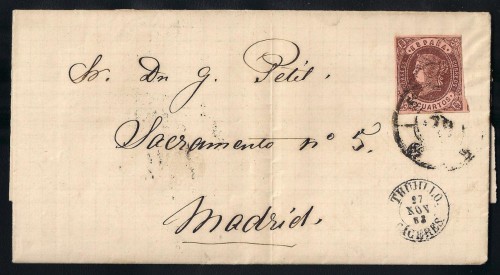 ESPAÑA
CUARTOS
Sr. Dn J. Petit.
Sacramento nº 5.
Madrid.
TRUJILLO.
27
NOV
63
CACERES.